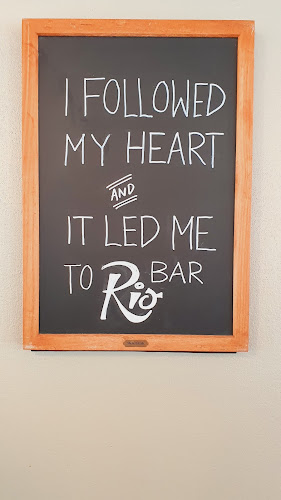 I FOLLOWED
MY HEART
AND
IT LED ME
TO Rio BAR